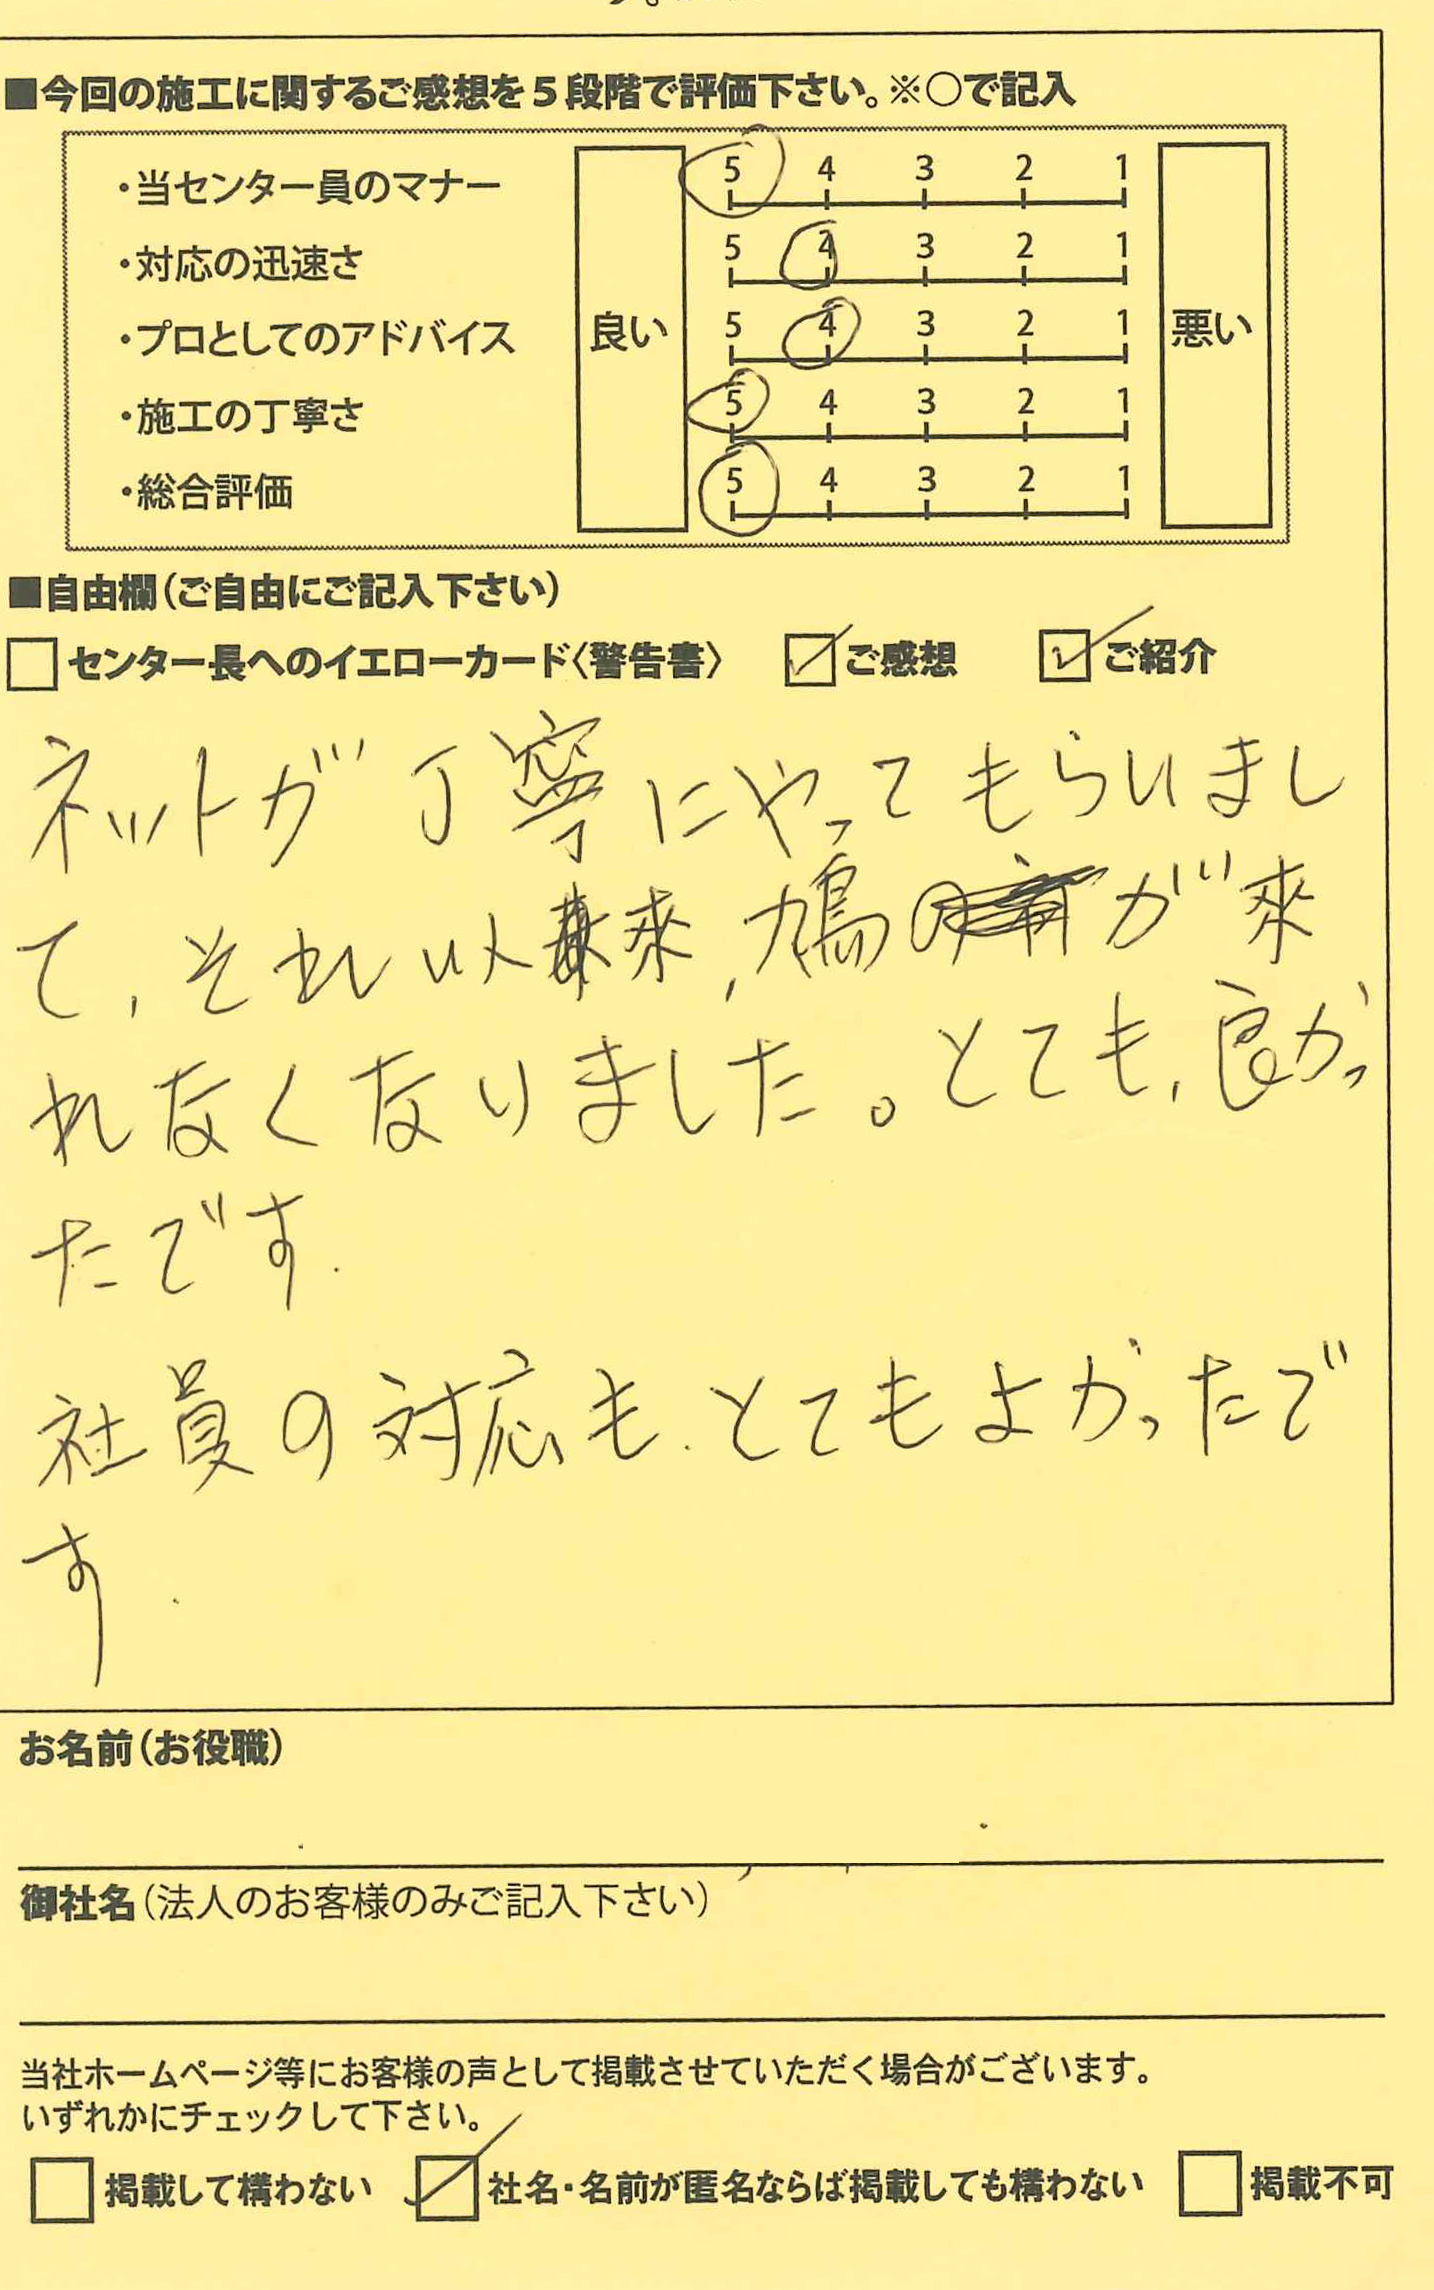 ■今回の施工に関するご感想を5段階で評価下さい。※○で記入
・当センター員のマナー 5 4 3 2 1
・対応の迅速さ 5 4 3 2 1
・プロとしてのアドバイス 良い 5 4 3 2 1 悪い
・施工の丁寧さ 5 4 3 2 1
・総合評価 5 4 3 2 1
■自由欄(ご自由にご記入下さい)
センター長へのイエローカード〈警告書〉 ご感想 ご紹介
ネットが丁寧にやってもらいまし
て、それ以来、鳩が来
れなくなりました。とても、良かっ
たです.
社員の対応も、とてもよかったで
す.
お名前(お役職)
御社名(法人のお客様のみご記入下さい)
当社ホームページ等にお客様の声として掲載させていただく場合がございます。
いずれかにチェックして下さい。
掲載して構わない 社名・名前が匿名ならば掲載しても構わない 掲載不可